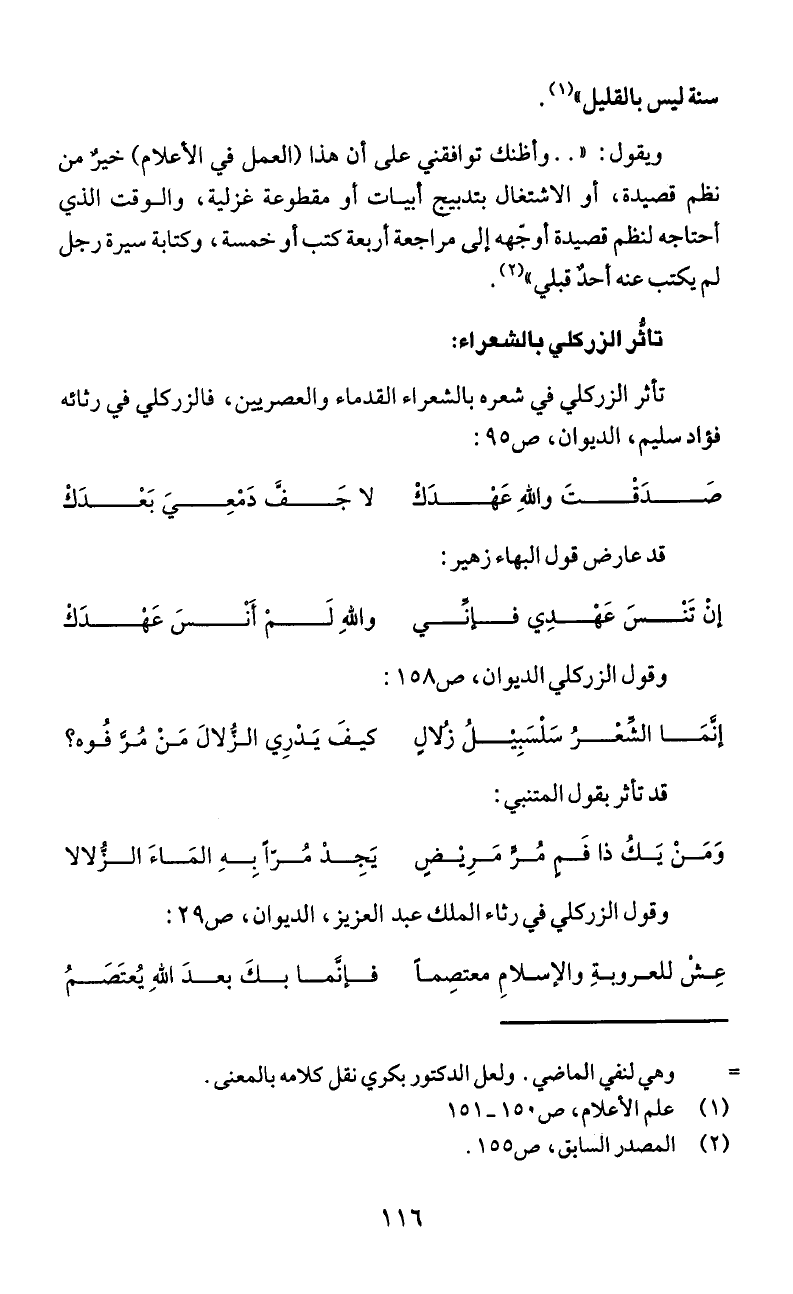 سنة ليس بالقليل»(١).
ويقول: «..وأظنك توافقني على أن هذا (العمل في الأعلام) خيرٌ من
نظم قصيدة، أو الاشتغال بتدبيج أبيات أو مقطوعة غزلية، والوقت الذي
أحتاجه لنظم قصيدة أوجّهه إلى مراجعة أربعة كتب أو خمسة، وكتابة سيرة رجل
لم يكتب عنه أحدٌ قبلي»(٢).
تأثُّر الزركلي بالشعراء:
تأثر الزركلي في شعره بالشعراء القدماء والعصريين، فالزركلي في رثائه
فؤاد سليم، الديوان، ص٩٥:
صَـدَقْـتَ واللهِ عَهْـدَكْ لا جَـفَّ دَمْعِـيَ بَعْـدَكْ
قد عارض قول البهاء زهير:
إنْ تَنْـسَ عَهْـدِي فـإنِّـي واللهِ لَـمْ أَنْـسَ عَهْـدَكْ
وقول الزركلي الديوان، ص١٥٨:
إنَّمَـا الشِّعْـرُ سَلْسَبِيْـلُ زُلالٍ كيفَ يَـدْرِي الـزُّلالَ مَـنْ مُـرَّ فُـوه؟
قد تأثر بقول المتنبي:
وَمَـنْ يَـكُ ذا فَـمٍ مُـرٍّ مَـرِيْـضٍ يَجِـدْ مُـرّاً بِـهِ المَـاءَ الـزُّلالا
وقول الزركلي في رثاء الملك عبد العزيز، الديوان، ص٢٩:
عِـشْ للعـروبـةِ والإسـلامِ معتصِمـاً فـإنَّمـا بـكَ بعـدَ اللهِ يُعتَصَـمُ
= وهي لنفي الماضي. ولعل الدكتور بكري نقل كلامه بالمعنى.
(١) علم الأعلام، ص١٥٠ـ١٥١
(٢) المصدر السابق، ص١٥٥.
١١٦